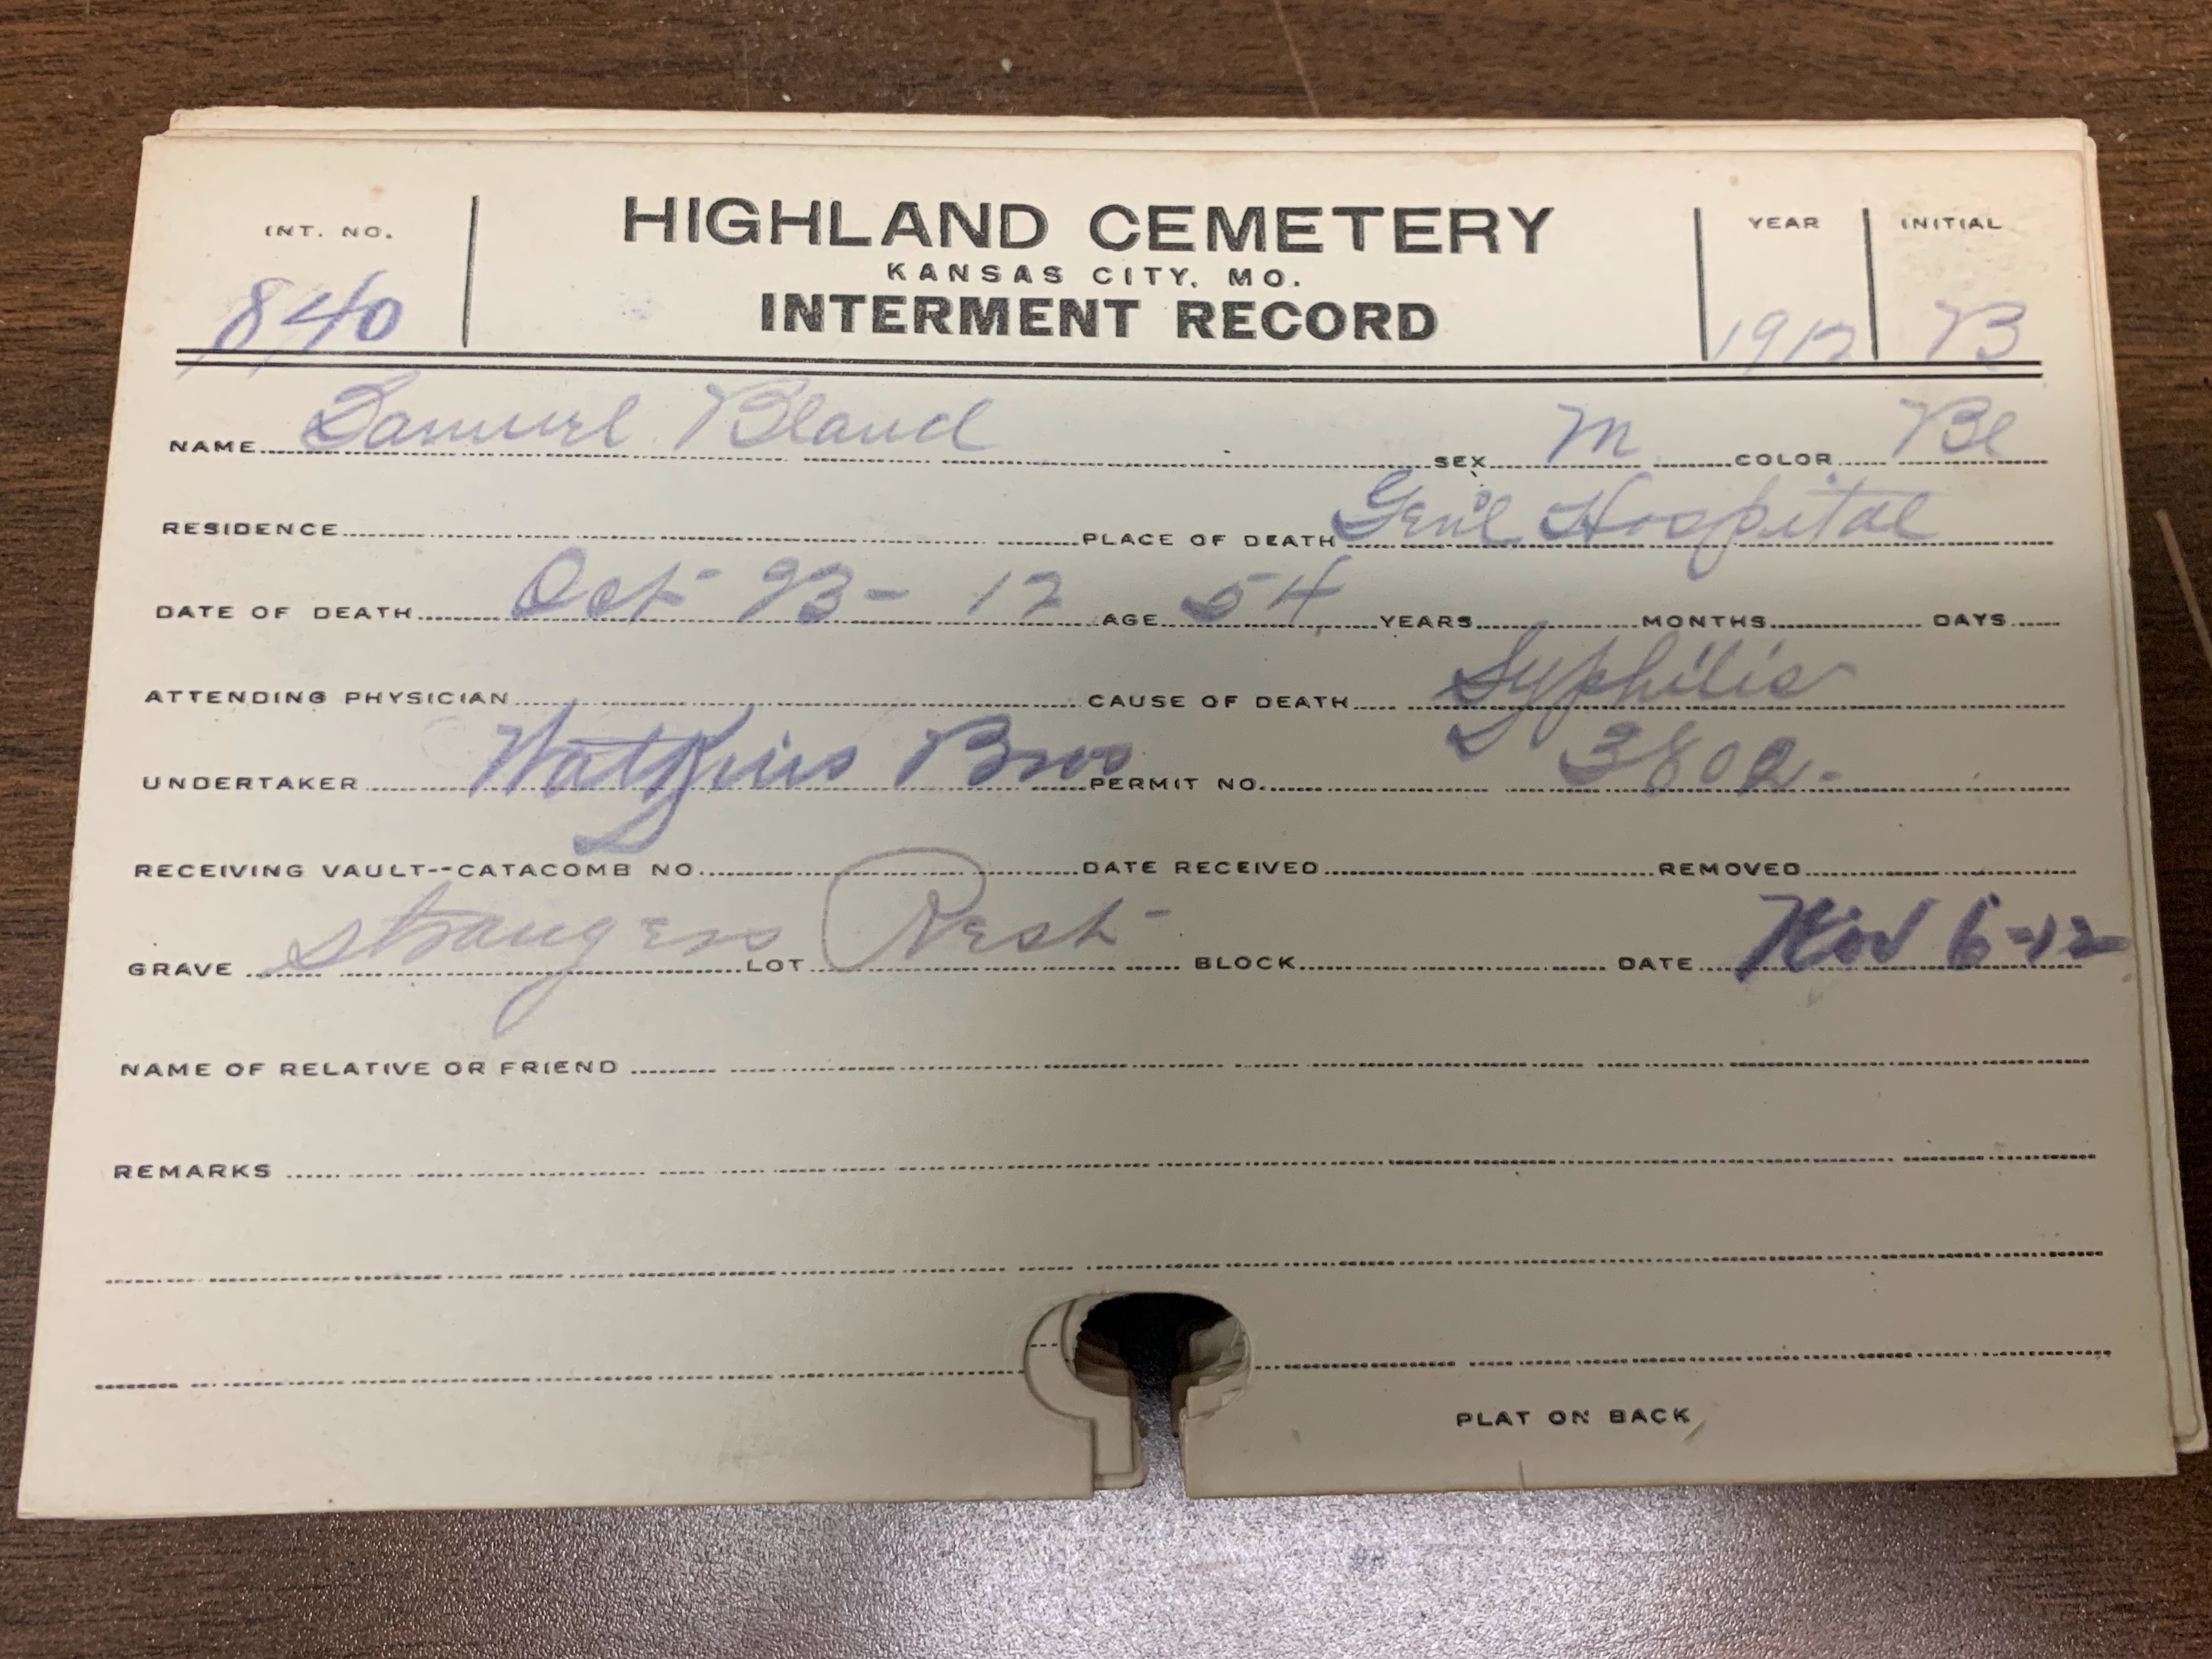 INT. NO. HIGHLAND CEMETERY YEAR INITIAL
KANSAS CITY, MO.
840 INTERMENT RECORD 1912 B
NAME Samuel Bland SEX M COLOR Bl
RESIDENCE PLACE OF DEATH Gen'l Hospital
DATE OF DEATH Oct- 23- 12 AGE 54 YEARS MONTHS DAYS
ATTENDING PHYSICIAN CAUSE OF DEATH Syphilis
UNDERTAKER Watkins Bros PERMIT NO. 3802-
RECEIVING VAULT--CATACOMB NO. DATE RECEIVED REMOVED
GRAVE strangers LOT Rest- BLOCK DATE Nov 6-12
NAME OF RELATIVE OR FRIEND
REMARKS
PLAT ON BACK